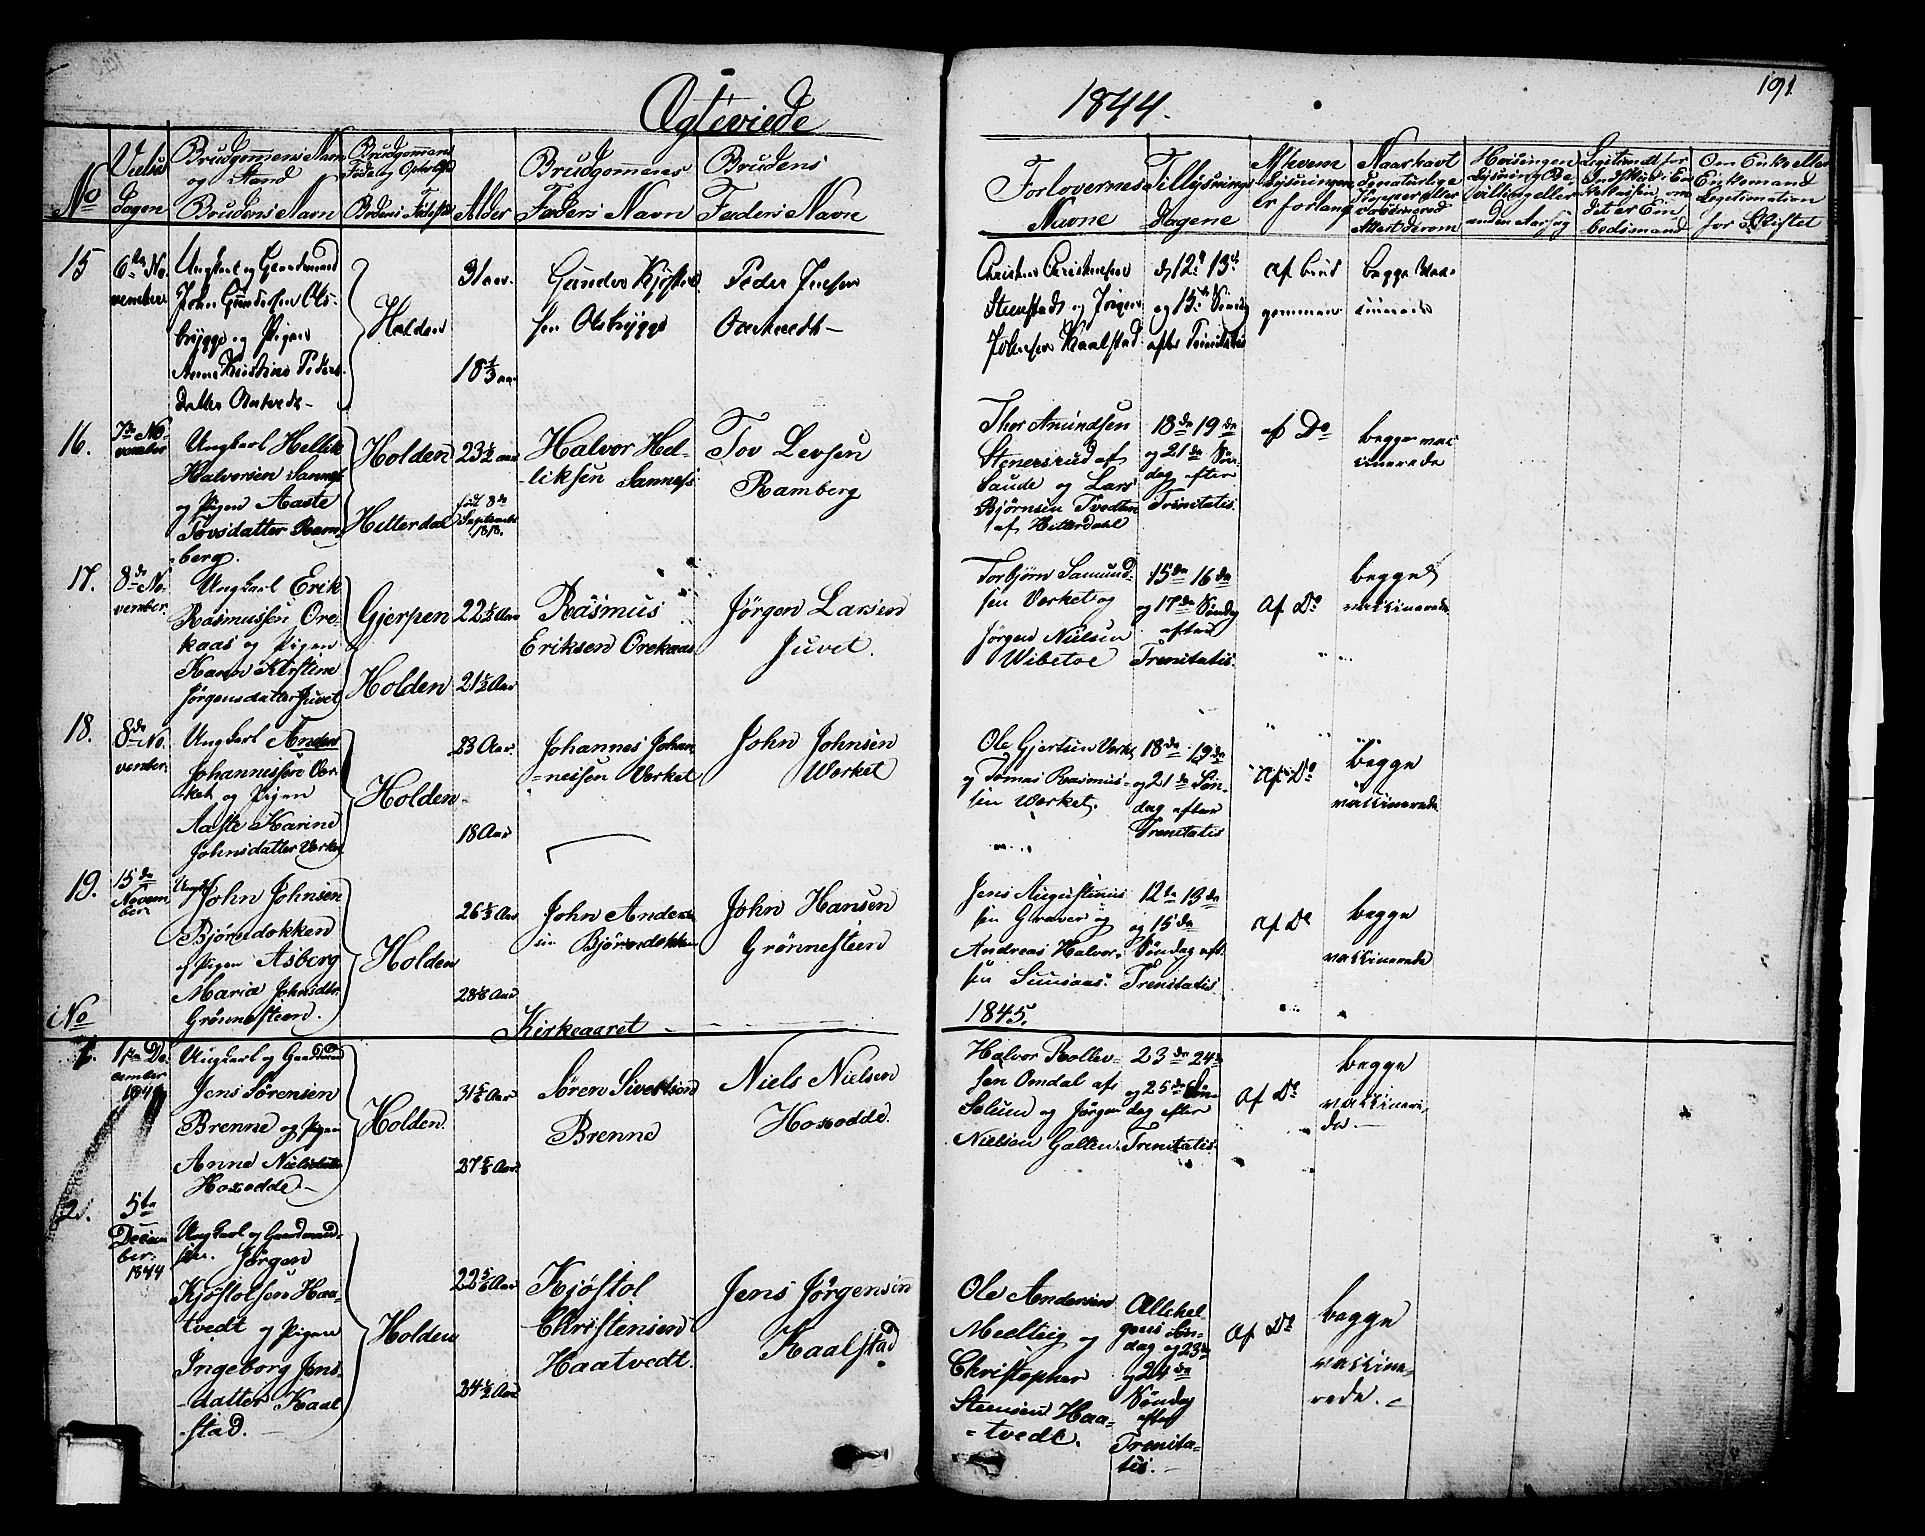 Ægteviede
1844.
191
No
Vielses Dagen
Brudgommens Navn
og Stand
Brudens Navn
Brudgommens
Føde og Opholdst
Brudens Fødest
Alder
Brudgommens
Faders Navn
Brudens
Faders Navn
Forlovernes
Navne
Tillysnings
dagene
Af hvem
Lysningen
er forlangt
Naar havt
de naturlige
Kopper eller
Attest derom
Hvis ingen
Lysning Be-
villing eller
Om Enke eller
Enkemand
Legitimation
for Skiftet
15
6te No-
vember
Ungkarl og Gaardmand
John Gundersen Ols-
brygge og Pigen
Anne Kirstine Peders-
datter Omtvedt
Holden
31 aar.
18 1/2 aar
Gunder Kjøstol-
sen Olsbrygge
Peder Jensen
Christen Christensen
Steenstad og Jørgen
Johnsen Kaalstad
12te 13de
og 15de Sønda
efter Trinitatis
af brud
gommen
begge vac-
cinerede
16.
7de No-
vember
Ungkarl Hellik
Halvorsen Sannes
og Pigen Aaste
Tovsdatter Ram-
berg.
Holden
Hitterdal
23 1/2 aar
fød 8de
September
1818.
Halvor Hel-
liksen Sannes
Tov Levsen
Ramberg
Thor Amundsen
Stenersrud af
Saude og Lars
Bjørnsen Tvedten
af Hiterdahl
18de 19de
og 21de Søn-
dag efter
Trinitatis.
af Do
begge vac
cinerede
17.
8de No-
vember.
Ungkarl Erik
Rasmussen Ore-
kaas og Pigen
Karen Kirstine
Jørgensdatter Juvet
Gjerpen
Holden
22 1/2 Aar
21 1/2 Aar
Rasmus
Eriksen Orekaas
Jørgen Larsen
Juvet.
Torbjørn Samund-
sen Verket og
Jørgen Nielsen
Wibetoe
15de 16de
og 17de Søndag
efter
Trenitatis.
Af Do
begge
vakkinerede
18.
8de No-
vember.
Ungkarl Anders
Johannessen Ver-
ket og Pigen
Aaste Karine
Johnsdatter Verket
Holden
23 Aar.
18 Aar
Johannes Johan-
nesen Verket
John Johnsen
Verket
Ole Gjertsen Verket
og Tomas Rasmus-
sen Verket.
18de 19de
og 21de Søn-
dag efter
Trenitatis
Af Do
begge
vakkinerede
19.
15de
Novem-
ber
Ungk John Johnsen
Bjørndokken
og Pigen Asberg
Maria Johnsdtr
Grønnesteen.
Holden
John Ander-
sen Bjørndokken
John Hansen
Grønnesteen
Jens Augustinus-
sen Graver og
Andreas Halvor-
sen
12te 13de
og 15de
Søndag eft.
Trenitatis
af Do
begge
vakkinerede
No
Kirkeaaret
1845.
1.
1ste De-
cember
1844
Ungkarl og Gaardmand
Jens Sørensen
Brenne og Pigen
Anne Nielsdatter
Hoxodde
Holden.
Søren Sivertsen
Brenne
Niels Nielsen
Hoxodde.
Halvor Rollev-
sen Omdal af
Solum og Jørgen
Nielsen Galten.
23de 24de
og 25de Søn-
dag efter
Trenitatis.
af Do
begge
vakkinere-
de.
2.
5te
Decem-
ber.
1844
Ungkarl og Gaardmand-
søn. Jørgen
Kjøstolsen Haa-
tvedt og Pigen
Ingeborg Jens-
datter Kaal-
stad.
Holden
22 5/6 Aar
24 1/2 Aar
Kjøstol
Christensen
Haatvedt.
Jens Jørgensen
Kaalstad
Ole Andersen
Meelteig og
Christopher
Steensen Haa-
tvedt.
Allehel-
gens Søn-
dag og 23de
og 24de
Søndag
efter
Trenita-
tis.
Af Do
begge
vakkine-
rede.